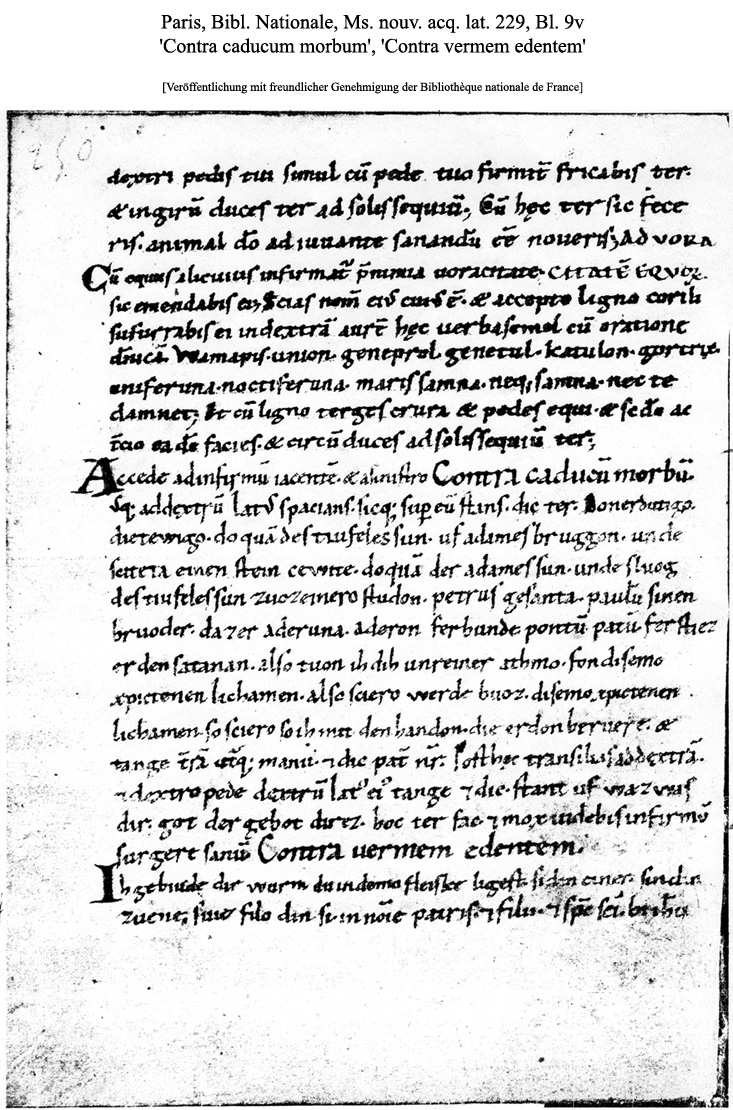 Paris, Bibl. Nationale, Ms. nouv. acq. lat. 229, Bl. 9v
'Contra caducum morbum', 'Contra vermem edentem'
[Veröffentlichung mit freundlicher Genehmigung der Bibliothèque nationale de France]
250
dextri pedis tui simul cū pede tuo firmit̄ fricabis ter·
& ingirū duces ter ad solis sequiū; Cū hęc ter sic fece
ris· animal dō adiuuante sanandū ēē noueris; AD VORA
Cū equus alicuius infirmat᷑ p̄ nimia uoracitate· CITATĒ EQVOR̄
sic emendabis eū; Scias nom̄ eiꝰ cuiꝰ ē· & accepto ligno corili
susurrabis ei in dextrā aurē hęc uerba semel cū oratione
dn̄ica· Wamapis· union· geneprol· genetul· katulon· gortrie·
uniferuna· noctiferuna· maris samna· neq; samna· nec te
damnet; Et cū ligno terges crura & pedes equi· & sc̄do ac
t̄cio eadē facies· & circū duces ad solis sequiū ter;
Accede ad infirmū iacentē· & a sinistro Contra caducū morbū·
usq; ad dextrū latꝰ spacians· sicq; sup eū stans· dic ter· Donerdutigo·
dietewigo· do quā des tiufeles sun· uf adames bruggon· unde
sciteta einen stein cewite· do quā der adames sun· unde sluog
des tiufeles sun zuo zeinero studon· petrus gesanta· paulū sinen
bruoder· da zer aderuna· aderon ferbunde pontū patū· ferstiez
er den satanan· also tuon ih dih unreiner athmo· fon disemo
xpictenen lichamen· also sciero werde buoz· disemo xpictenen
lichamen· so sciero so ih mit den handon· die erdon beruere· &
tange t̄rā utq; manu· ⁊ dic pat̄ nr̄· Post hęc transilias ad dextrā·
⁊ dextro pede dextrū latꝰ eiꝰ tange ⁊ dic· stant uf waz was
dir· got der gebot dir ez· hoc ter fac ⁊ mox uidebis infirmū
surgere sanū Contra uermem edentem·
Ih gebiude dir wurm du in demo fleiske ligest· si din einer· sin din
zuene; siue filo din si· in noīe patris· ⁊ filii· ⁊ sp̄c sc̄i·